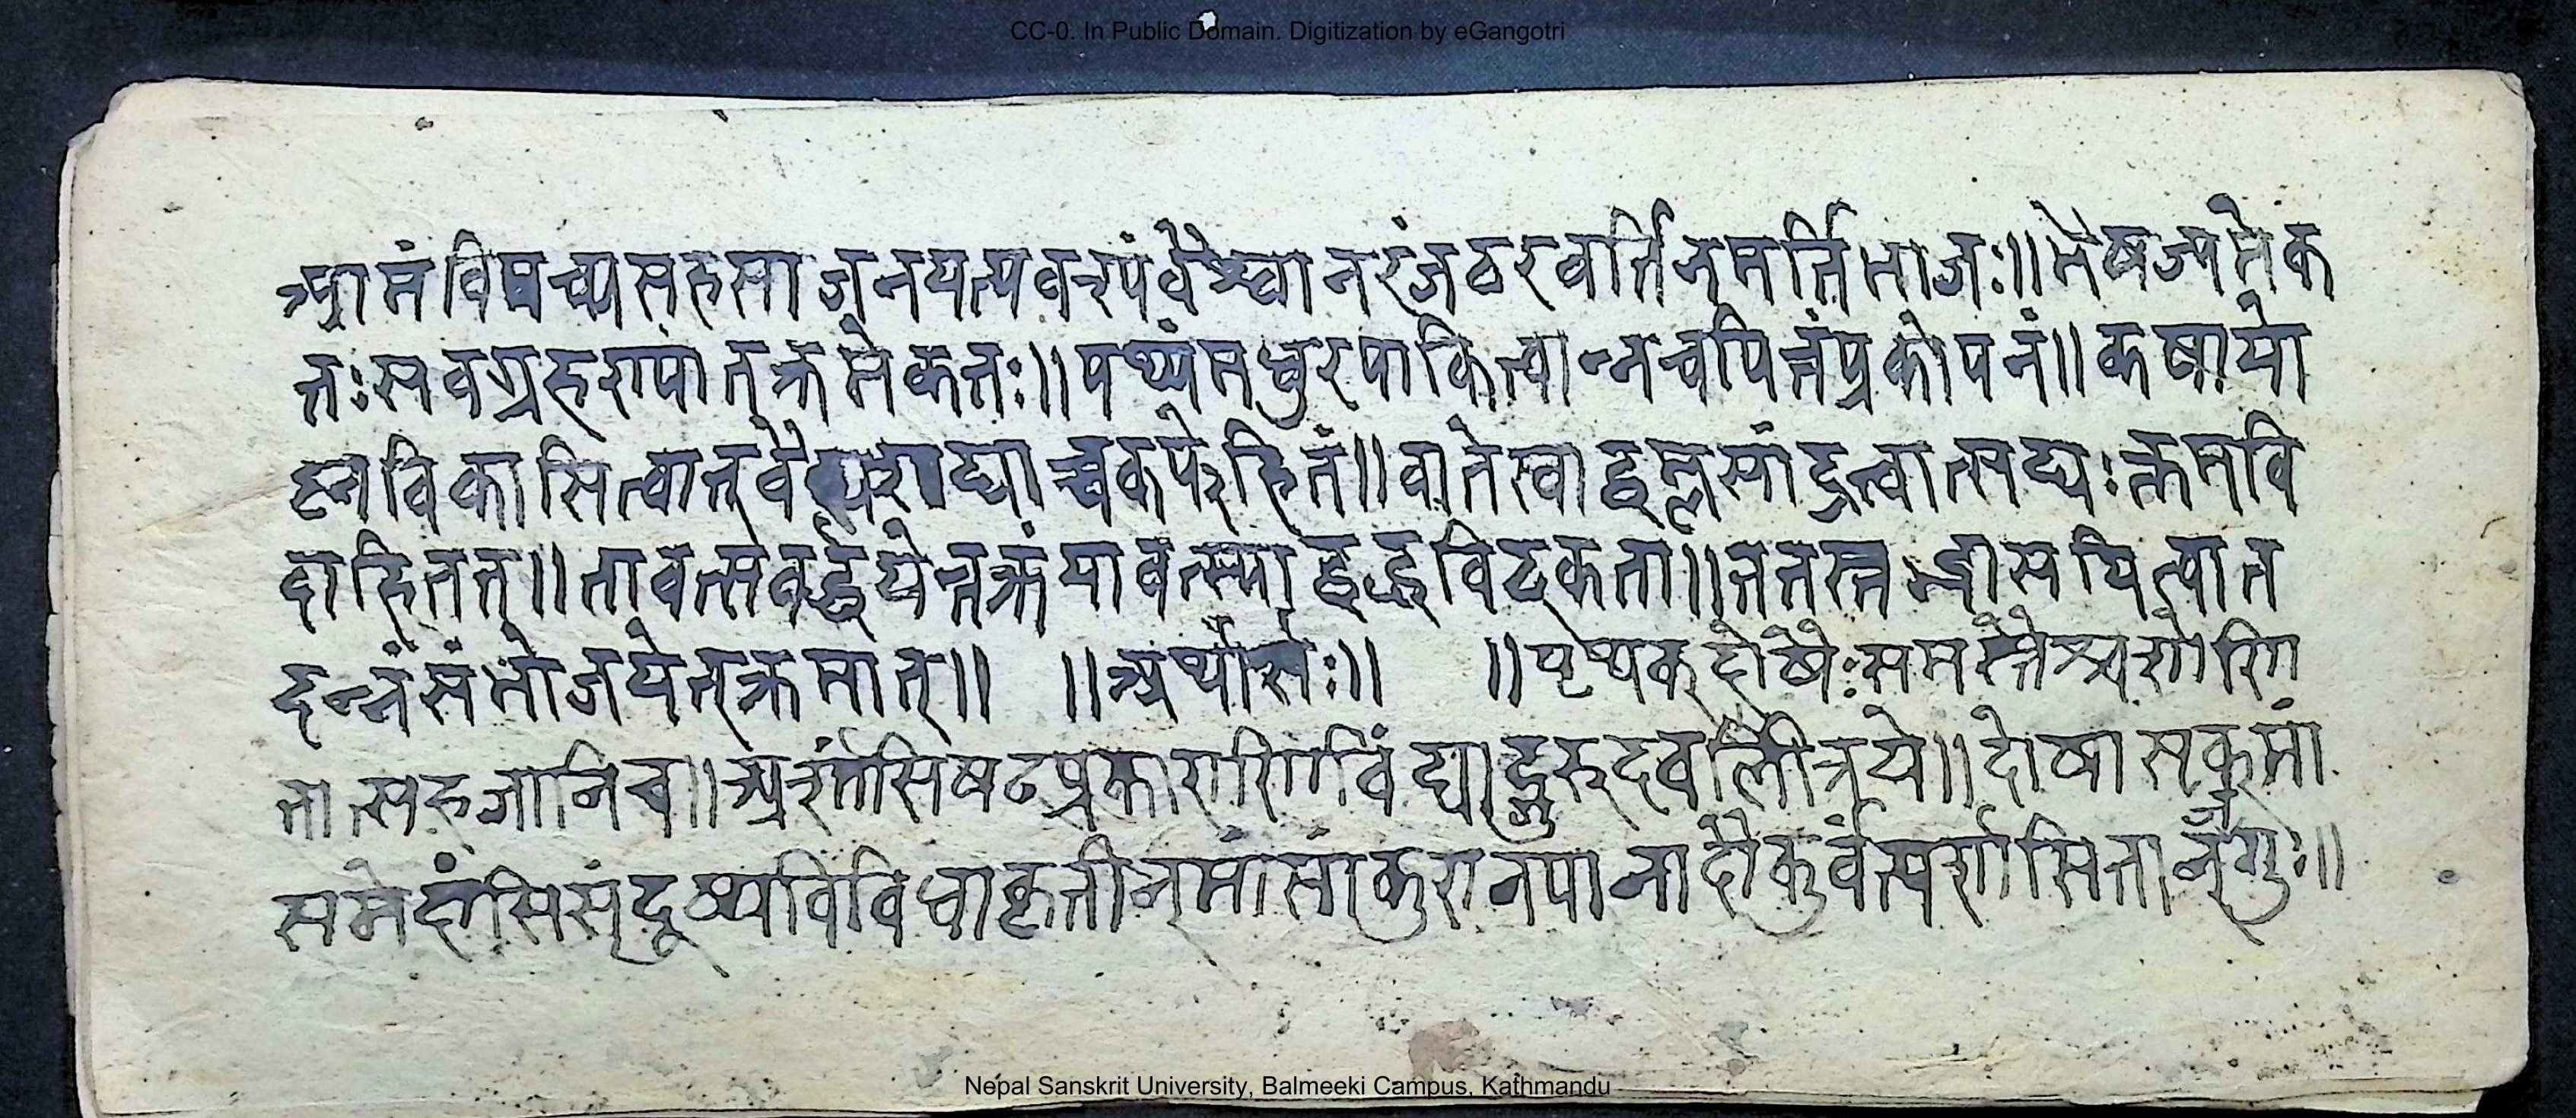 CC-0. In Public Domain. Digitization by eGangotri
विपच्यसहसाजनयत्यवश्यंवैश्वानरंजठरवर्त्तिनमर्त्तिभाजः॥भेषज्यमेक
तः सवग्रहरापातक्रमेकतः॥पथ्यंमधुरपाकित्वान्नचपित्तंप्रकोपनं॥कषायो
ह्नविकासित्वात्वै कफेहितं॥वातेस्वाद्वम्लसांद्रत्वात्सद्यःक्तमवि
दाहितत्॥तावत्संवर्द्धयेत्तक्रंयावत्स्याद्बद्धविट्कता॥ततस्त त
दन्नंसंभोजयेत्क्रमात्॥ ॥अर्थार्सः॥ ॥पृथक्दोषैःसमस्तैश्चशोणि
तात्सहजानिच॥अर्शांसिषट्प्रकाराणिविंद्याद्गुरुदवलीत्रये॥दोषास्त्वक्मां
समेदांसिसंदूष्यविविधाकृतीन्मांसांकुरानपानादौकुर्वंत्यर्शांसितान्जगुः॥
Nepal Sanskrit University, Balmeeki Campus, Kathmandu